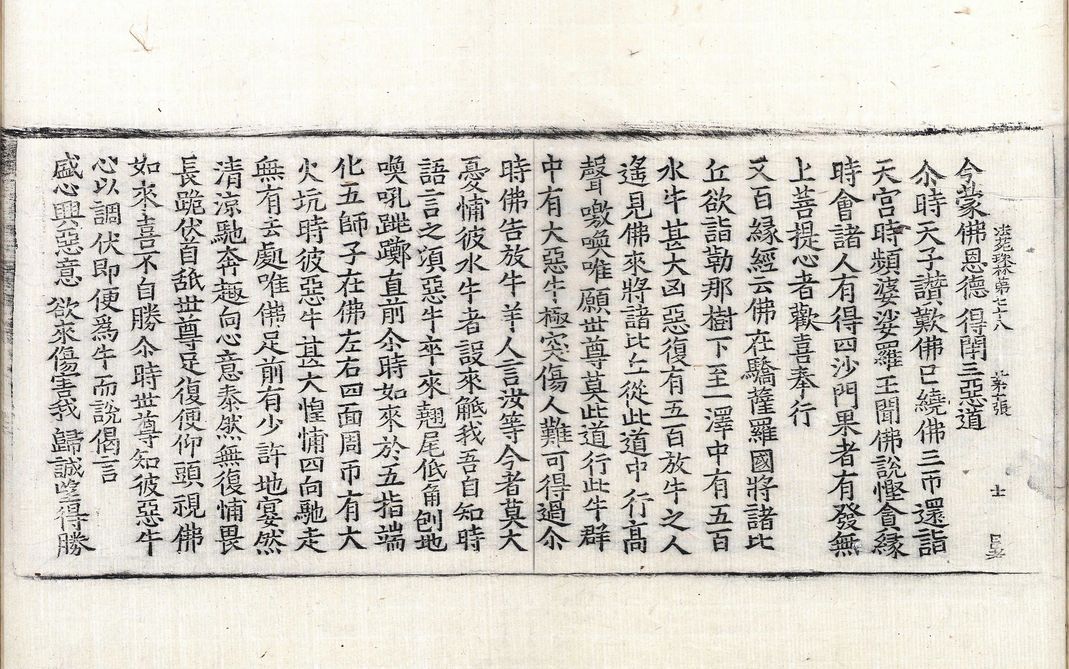 法苑珠林第七十八 張 士
今蒙佛恩德 得閇三惡道
尒時天子讃歎佛已繞佛三帀還詣
天宮時頻婆娑羅王聞佛說慳貪緣
時會諸人有得四沙門果者有發無
上菩提心者歡喜奉行
又百緣經云佛在驕薩羅國將諸比
丘欲詣勒那樹下至一澤中有五百
水牛甚大凶惡復有五百放牛之人
遙見佛來將諸比丘從此道中行高
聲噭喚唯願世尊莫此道行此牛群
中有大惡牛極突傷人難可得過尒
時佛告放牛羊人言汝等今者莫大
憂怖彼水牛者設來觝我吾自知時
語言之頃惡牛卒來翹尾低角刨地
喚吼跳躑直前尒時如來於五指端
化五師子在佛左右四面周帀有大
火坑時彼惡牛甚大惶怖四向馳走
無有去處唯佛足前有少許地宴然
清涼馳奔趣向心意泰然無復怖畏
長跪伏首舐世尊足復便仰頭視佛
如來喜不自勝尒時世尊知彼惡牛
心以調伏即便爲牛而說偈言
盛心興惡意 欲來傷害我 歸誠望得勝